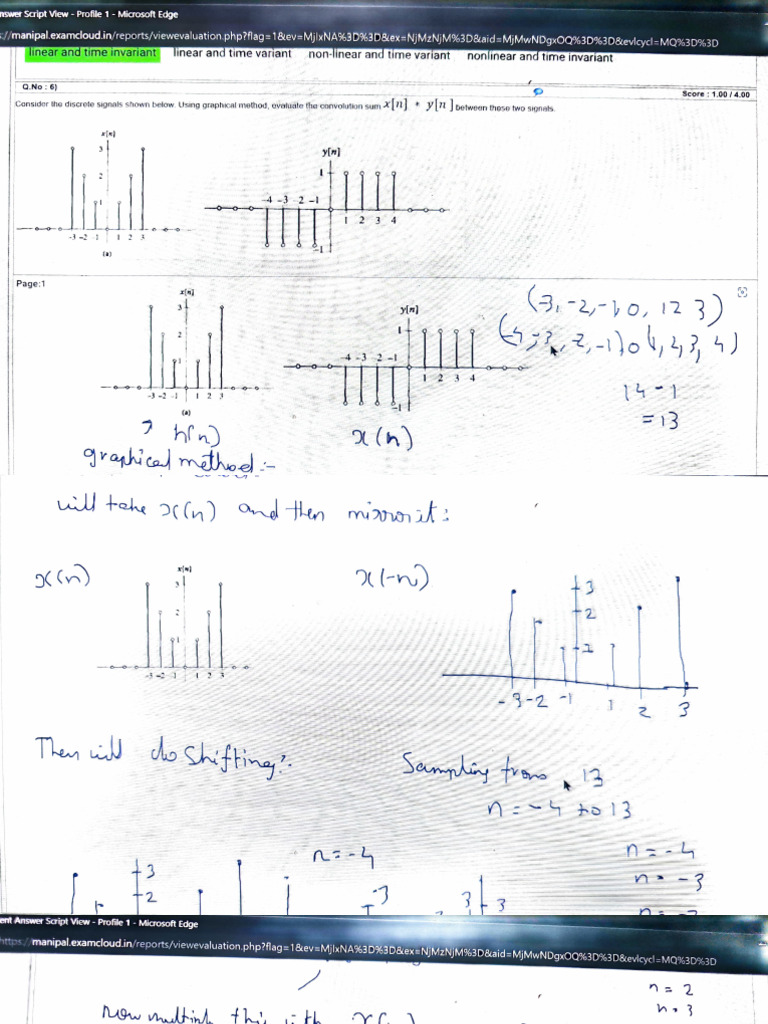 nswer Script View - Profile 1 - Microsoft Edge
://manipal.examcloud.in/reports/viewevaluation.php?flag=1&ev=MjIxNA%3D%3D&ex=NjMzNjM%3D&aid=MjMwNDgxOQ%3D%3D&evlcycl=MQ%3D%3D
linear and time invariant linear and time variant non-linear and time variant nonlinear and time invariant
Q.No : 6) Score : 1.00 / 4.00
Consider the discrete signals shown below. Using graphical method, evaluate the convolution sum x[n] * y[n] between these two signals.
x[n]
3
2
1
-3 -2 -1 1 2 3
(a)
y[n]
1
-4 -3 -2 -1
1 2 3 4
-1
Page:1
x[n]
3
2
1
-3 -2 -1 1 2 3
(a)
y[n]
1
-4 -3 -2 -1
1 2 3 4
-1
(-3, -2, -1, 0, 1 2 3)
(-4, -3, -2, -1) 0 (1, 2, 3, 4)
14 - 1
= 13
h(n)
x(n)
graphical method :-
will take x(n) and then mirror it :
x(n)
x[n]
3
2
1
-3 -2 -1 1 2 3
x(-n)
3
2
1
-3 -2 -1 1 2 3
Then will do shifting :
Sampling from 13
n = -4 to 13
n = -4
n = -4
n = -3
3
2
-3
3
3
ent Answer Script View - Profile 1 - Microsoft Edge
https://manipal.examcloud.in/reports/viewevaluation.php?flag=1&ev=MjIxNA%3D%3D&ex=NjMzNjM%3D&aid=MjMwNDgxOQ%3D%3D&evlcycl=MQ%3D%3D
n = 2
n = 3
now multiply this with x(